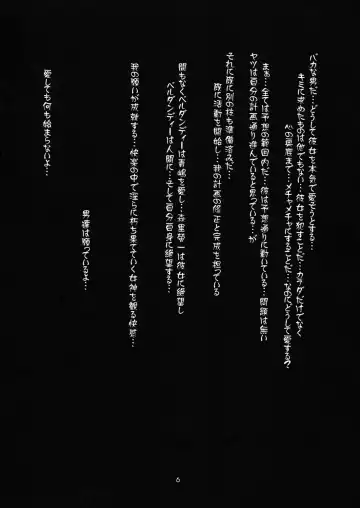 バカな男だ・・・どうして彼女を本気で愛そうとする・・・
キミに求めたものは他でもない・・・彼女を犯すことだ・・・カラダだけでなく
心の奥底まで・・・メチャメチャにすることだ・・・なのにどうして愛する？
まぁ・・・全ては予想の範囲内だ・・・彼は予想通りに動いている・・・問題は無い
ヤツは自分の計画通り進んでいると思っている・・・が
それに既に別の枝も準備済みだ・・・
既に活動を開始し・・・我の計画の修正と完成を担っている
間もなくベルダンディーは青嶋を愛し・・・森里螢一は彼女に絶望し
ベルダンディーは人間に・・・そして自分自身に絶望する・・・
我の願いが成就する・・・快楽の中で淫らに朽ち果てていく女神を観る快感・・・
男達は願っているよ・・・
愛しても何も始まらないよ・・・
6